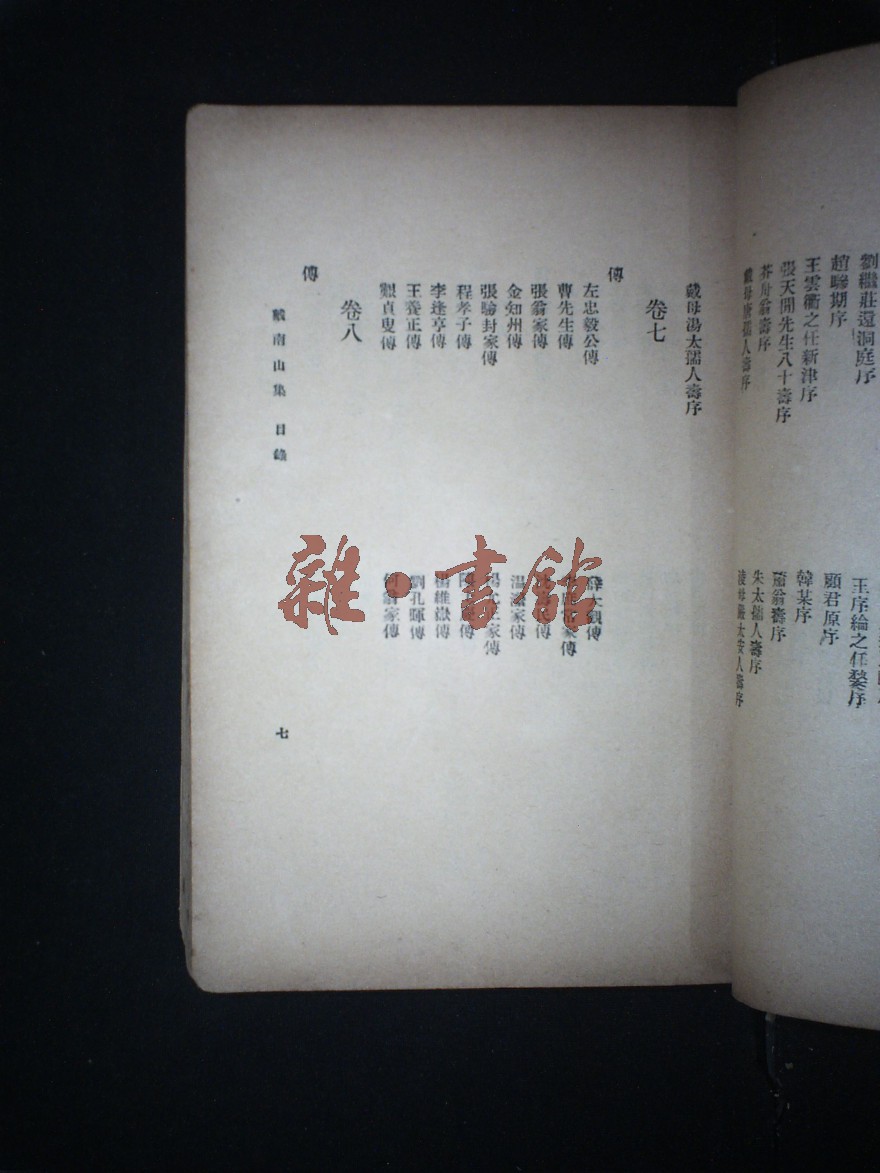 劉繼莊還洞庭序
趙驂期序
王雲衢之任新津序
張天閒先生八十壽序
芥舟翁壽序
戴母唐孺人壽序
王序綸之任婺序
顧君原序
韓某序
蕭翁壽序
朱太孺人壽序
淩母嚴太安人壽序
戴母湯太孺人壽序
卷七
傳
左忠毅公傳
曹先生傳
張翁家傳
金知州傳
張驗封家傳
程孝子傳
李逢亨傳
王養正傳
溫溁家傳
劉孔暉傳
何翁家傳
卷八
傳
戴南山集 目錄
七
雜·書館